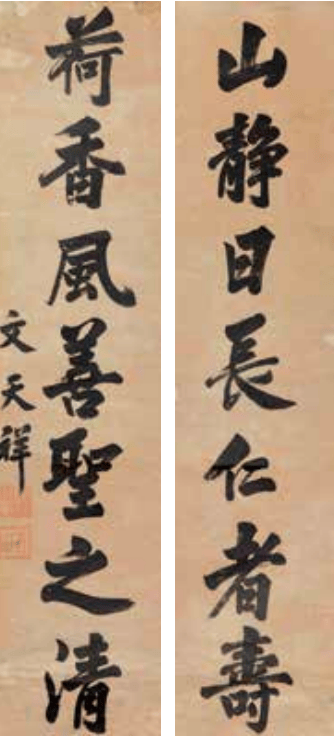 山静日長仁者壽
荷香風善聖之清
文天祥